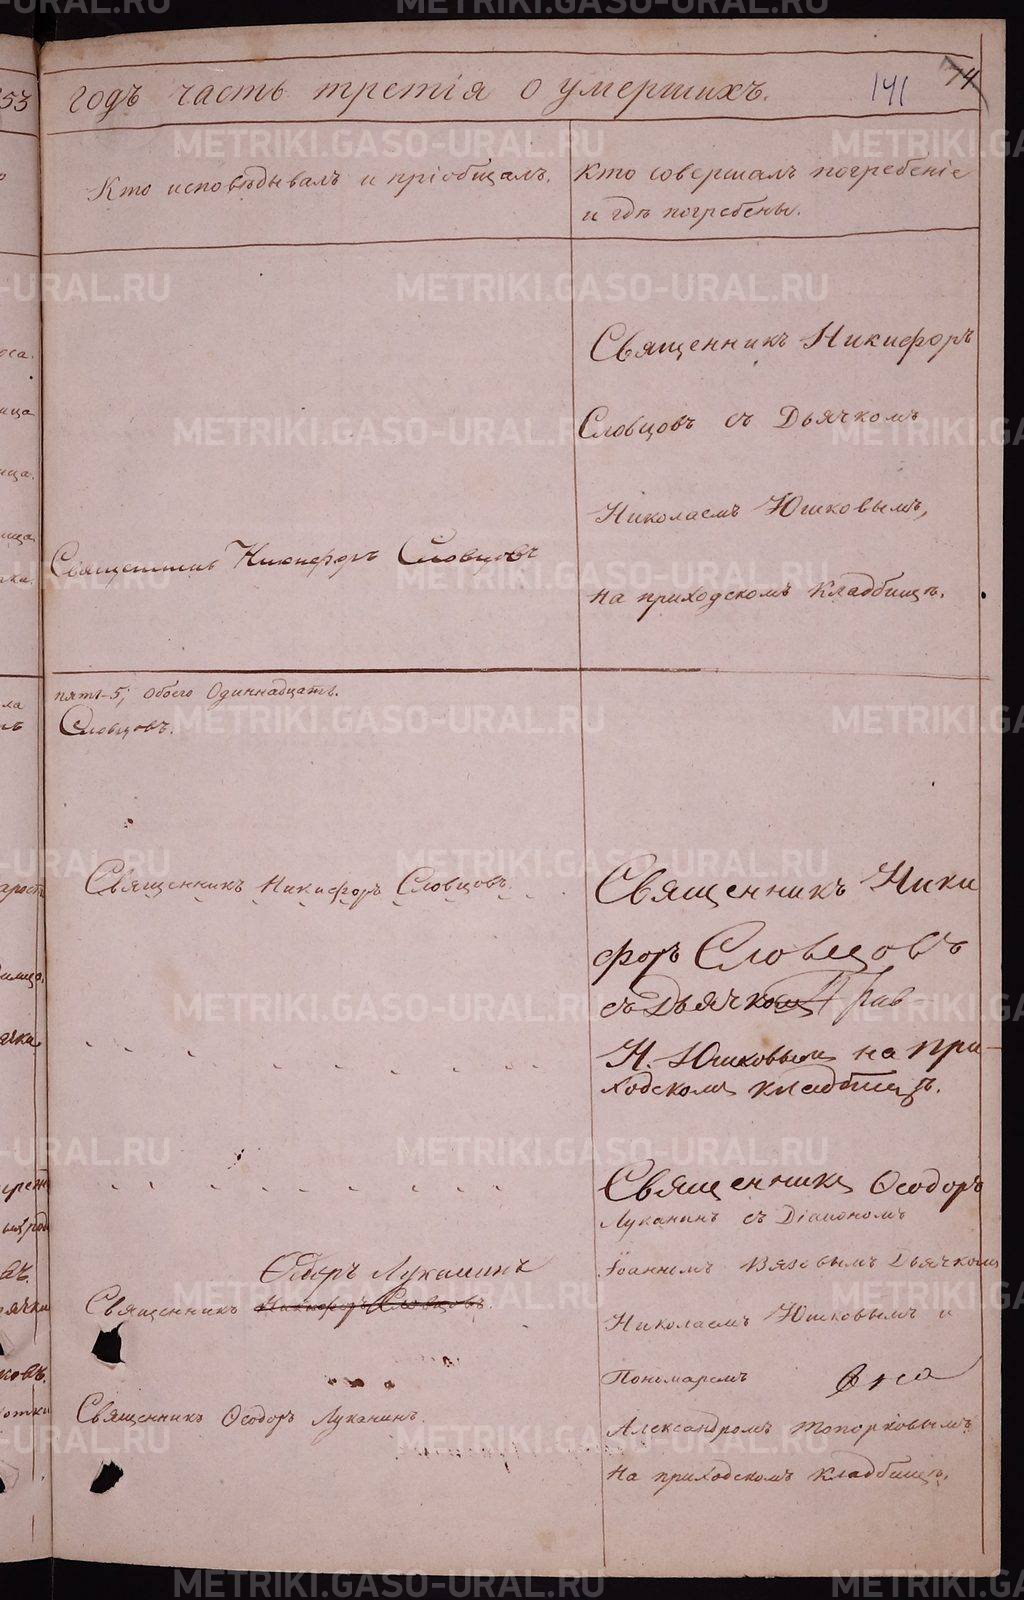 53 годъ часть третія о умершихъ. 141 74
Кто исповѣдывалъ и пріобщалъ.
Кто совершалъ погребеніе
и гдѣ погребены.
Священникъ Никифоръ
Словцовъ съ Дьячкомъ
Николаемъ Юшковымъ,
на приходскомъ кладбищѣ.
Священникъ Никифоръ Словцовъ
пять-5; обоего Одиннадцать.
Словцовъ.
Священникъ Никифоръ Словцовъ.
Священникъ Ники
форъ Словцовъ
съ Дьячкомъ
Н. Юшковымъ на при-
ходскомъ кладбищѣ.
Священникъ Ѳеодоръ
Луканинъ съ Діакономъ
Іоанномъ Вязовымъ Дьячкомъ
Николаемъ Юшковымъ и
Пономаремъ
Александромъ Топорковымъ
на приходскомъ кладбищѣ.
Ѳедоръ Луканинъ
Священникъ Никифоръ Словцовъ.
Священникъ Ѳеодоръ Луканинъ.
METRIKI.GASO-URAL.RU